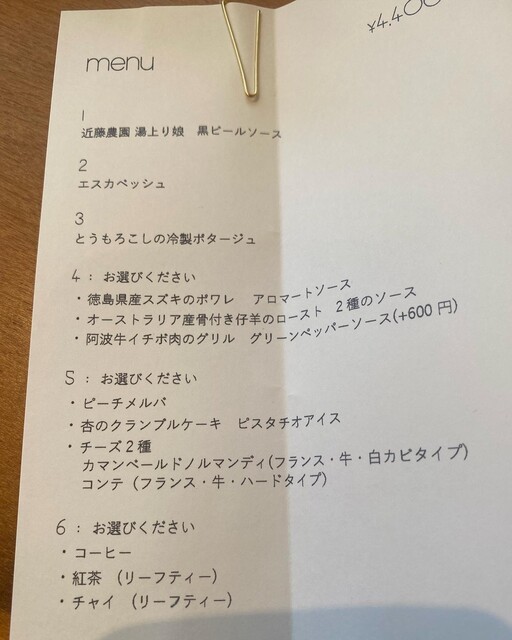 ¥4,400
menu
1
近藤農園 湯上り娘　黒ビールソース
2
エスカベッシュ
3
とうもろこしの冷製ポタージュ
4 : お選びください
・徳島県産スズキのポワレ　アロマートソース
・オーストラリア産骨付き仔羊のロースト　2種のソース
・阿波牛イチボ肉のグリル　グリーンペッパーソース(+600 円)
5 : お選びください
・ピーチメルバ
・杏のクランブルケーキ　ピスタチオアイス
・チーズ2種
カマンベールドノルマンディ(フランス・牛・白カビタイプ)
コンテ（フランス・牛・ハードタイプ)
6 : お選びください
・コーヒー
・紅茶　(リーフティー)
・チャイ　(リーフティー)